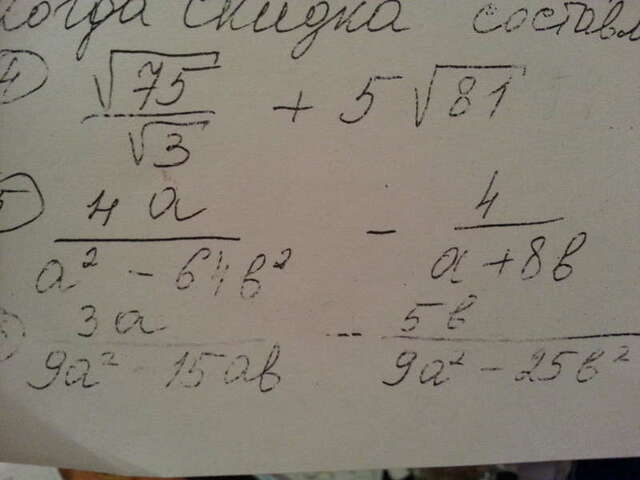 когда скидка составл
4) √75/√3 + 5√81
5) 4a/(a² - 64b²) - 4/(a + 8b)
3a/(9a² - 15ab) - 5b/(9a² - 25b²)